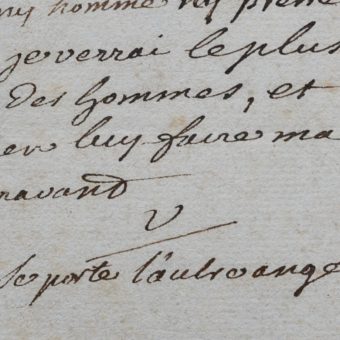 homme ny pierre
je verrai le plus
des hommes, et
luy faire ma
ravand
V
se porte l'autre ange